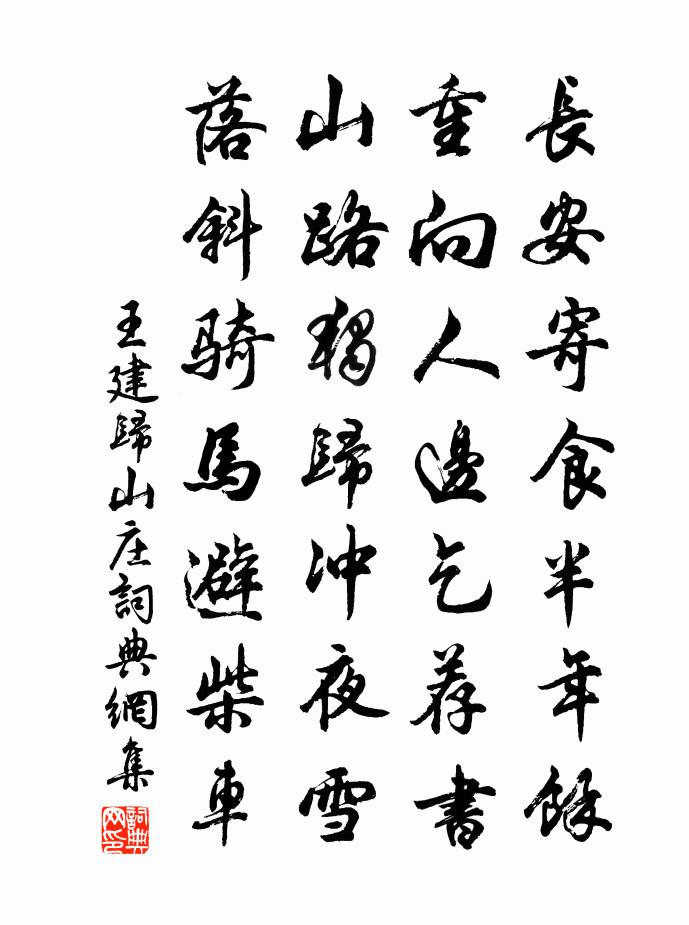 長安寄食半年餘
重向人邊乞荐書
山路獨歸冲夜雪
落斜騎馬避柴車
王建歸山庄詞典網集
詞典网印